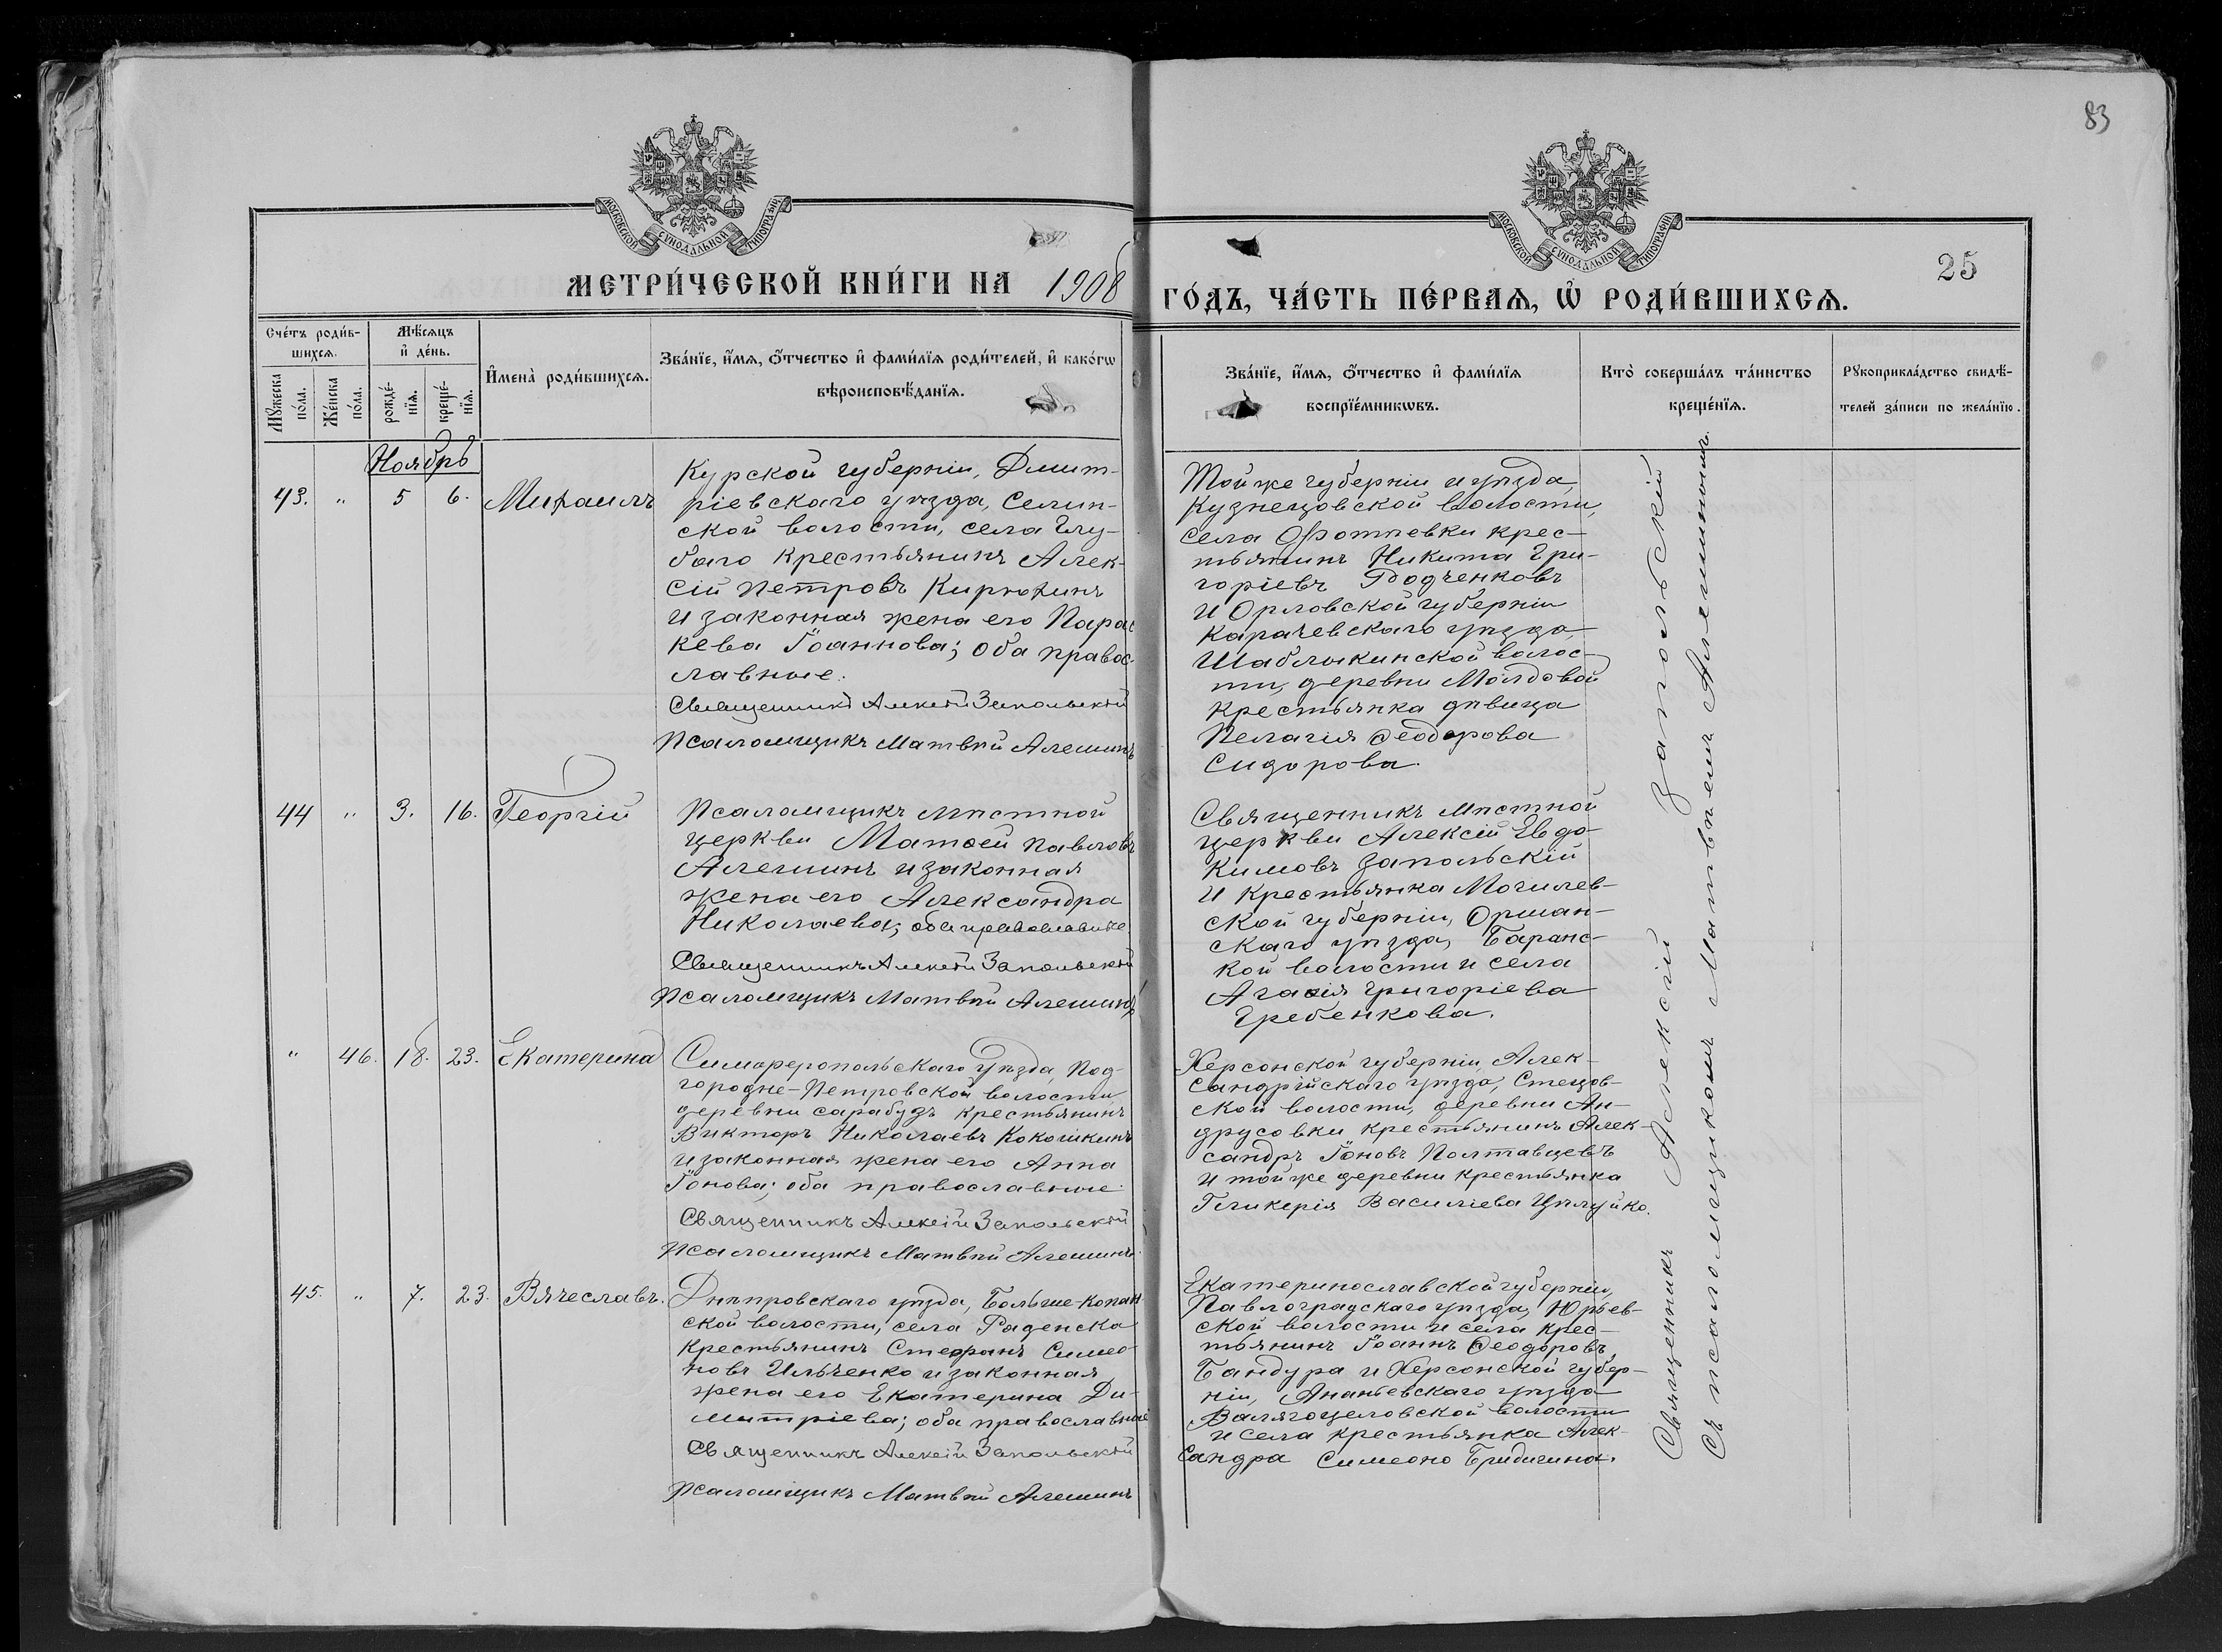 83
МОСКОВСКОЙ СѴНОДАЛЬНОЙ ТИПОГРАФІИ
МОСКОВСКОЙ СѴНОДАЛЬНОЙ ТИПОГРАФІИ
25
МЕТРИ́ЧЕСКОЙ КНИ́ГИ НА 1908
ГО́ДЪ, ЧА́СТЬ ПЕ́РВАѦ, Ѡ҆ РОДИ́ВШИХСѦ.
Сче́тъ роди́в-
шихсѧ.
Мѣ́сѧцъ
и҆ де́нь.
Мꙋ́жеска
по́ла.
Же́нска
по́ла.
рожде́-
нїѧ.
креще́-
нїѧ.
И҆мена̀ роди́вшихсѧ.
Зва́нїе, и҆́мѧ, ѻ҆́тчество и҆ фами́лїѧ роди́телей, и҆ како́гѡ
вѣроисповѣ́данїѧ.
Зва́нїе, и҆́мѧ, ѻ҆́тчество и҆ фами́лїѧ
воспрїе́мникѡвъ.
Кто̀ соверша́лъ та́инство
креще́нїѧ.
Рꙋкоприкла́дство свидѣ́-
телей за́писи по жела́нїю.
Ноябрь
43. " 5 6. Михаилъ
Курской губерніи, Дмит-
ріевскаго уѣзда, Селин-
ской волости, села Глу-
баго крестьянинъ Алек-
сій Петровъ Кирюхинъ
и законная жена его Парас
кева Іоаннова; оба правос-
лавные.
Священникъ Алексій Запольскій
Псаломщикъ Матвѣй Алешинъ
Той же губерніи и уѣзда,
Кузнецовской волости,
села Фотѣевки крес-
тьянинъ Никита Гри-
горіевъ Родченковъ
и Орловской губерніи
Карачевскаго уѣзда,
Шаблыкинской волос-
ти, деревни Молдовой
крестьянка дѣвица
Пелагія Ѳеодорова
Сидорова.
44 " 3. 16. Георгій
Псаломщикъ мѣстной
церкви Матѳей Павловъ
Алешинъ и законная
жена его Александра
Николаева; оба православные
Священникъ Алексій Запольскій
Псаломщикъ Матвѣй Алешинъ
Священникъ мѣстной
церкви Алексій Евдо-
кимовъ Запольскій
и крестьянка Могилев-
ской губерніи, Оршан-
скаго уѣзда, Баранс-
кой волости и села
Агаѳія Григоріева
Гребенкова.
" 46. 18. 23. Екатерина
Симферопольскаго уѣзда, Под-
городне-Петровской волости
деревни Сарабузъ крестьянинъ
Викторъ Николаевъ Кокошкинъ
и законная жена его Анна
Іонова; оба православные.
Священникъ Алексій Запольскій
Псаломщикъ Матвѣй Алешинъ
Херсонской губерніи, Алек-
сандрійскаго уѣзда, Стецов-
ской волости, деревни Ан-
друсовки крестьянинъ Алек-
сандръ Іоновъ Полтавцевъ
и той же деревни крестьянка
Гликерія Василіева
45. " 7. 23. Вячеславъ.
Днѣпровскаго уѣзда, Больше-Копан
ской волости, села Раденска
крестьянинъ Стефанъ Симео-
новъ Ильченко и законная
жена его Екатерина Ди-
митріева; оба православные
Священникъ Алексій Запольскій
Псаломщикъ Матвѣй Алешинъ
Екатеринославской губерніи,
Павлоградскаго уѣзда, Юрьев-
ской волости и села крес-
тьянинъ Іоаннъ Ѳеодоровъ
Бандура и Херсонской губер-
ніи, Ананьевскаго уѣзда
волости
и села крестьянка Алек-
сандра
Священникъ Алексій Запольскій
Съ псаломщикомъ Матвѣемъ Алешинымъ.